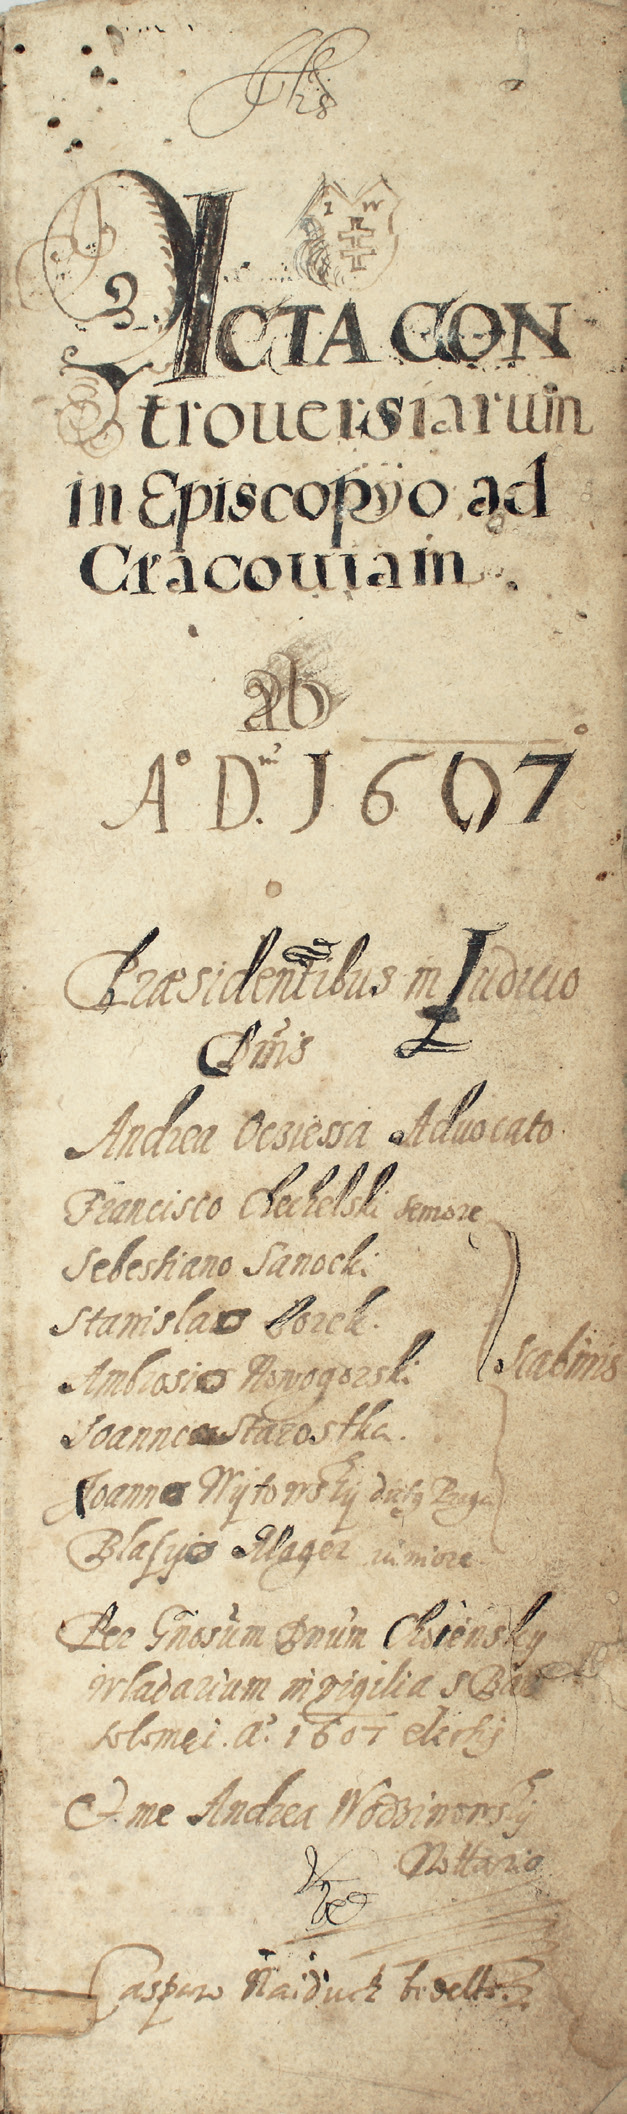 Jhs
I W
ACTA CON
trouersiaruin
in Episcopyo ad
Cracouiain.
ab
A° D.ni 1607
Præsidentibus in Iudicio
Dnis
Andrea Ocziessa Aduocato
Francisco Chechelski semore
Sebestiano Sanocki
Stanislao Borek.
Ambrosio Nowogorski
Scabinis
Joanne Starostka.
Joanne Wytowsky
Blasyo Mager iuniore
Per Gnosum Dnum Choiensky
wladarium in vigilia S Bar
tolomei. a° 1607 electis
& me Andrea Wodzinowsky
Nottario
Casparo Naiduch bedello